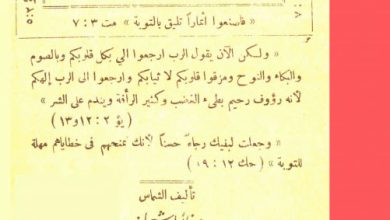 « فاصنعوا أثماراً تليق بالتوبة » مت ٣ : ٧
« ولكن الآن يقول الرب ارجعوا الي بكل قلوبكم وبالصوم
والبكاء والنوح ومزقوا قلوبكم لا ثيابكم وارجعوا الى الرب إلهكم
لأنه رؤوف رحيم بطىء الغضب وكثير الرأفة ويندم على الشر »
( يؤ ٢ : ١٢ و ١٣ )
« وجعلت لبنيك رجاءً حسناً لأنك تمنحهم فى خطاياهم مهلة
للتوبة » ( حك ١٢ : ١٩ )
تأليف الشماس